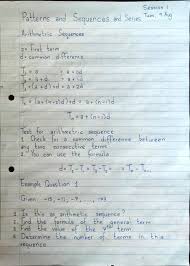 Session 1
Patterns and Sequences and Series
Tam, 9 Aug
Arithmetic Sequences
a = first term
d = common difference
T₁ = a ; a + 0d
T₂ = a + d ; a + 1d
T₃ = a + d + d ; a + 2d
Tₙ = a + (n-1)d
Test for arithmetic sequence
1. Check for a common difference between
any two consecutive terms
2. You can use the formula
d = T₂ - T₁ = T₃ - T₂ =
Example Question 1
Given -15, -11, -7, ..., 193
1. Is this an arithmetic sequence?
2. Find the formula of the general term
3. Find the value of the term
4. Determine the number of terms in this
sequence.